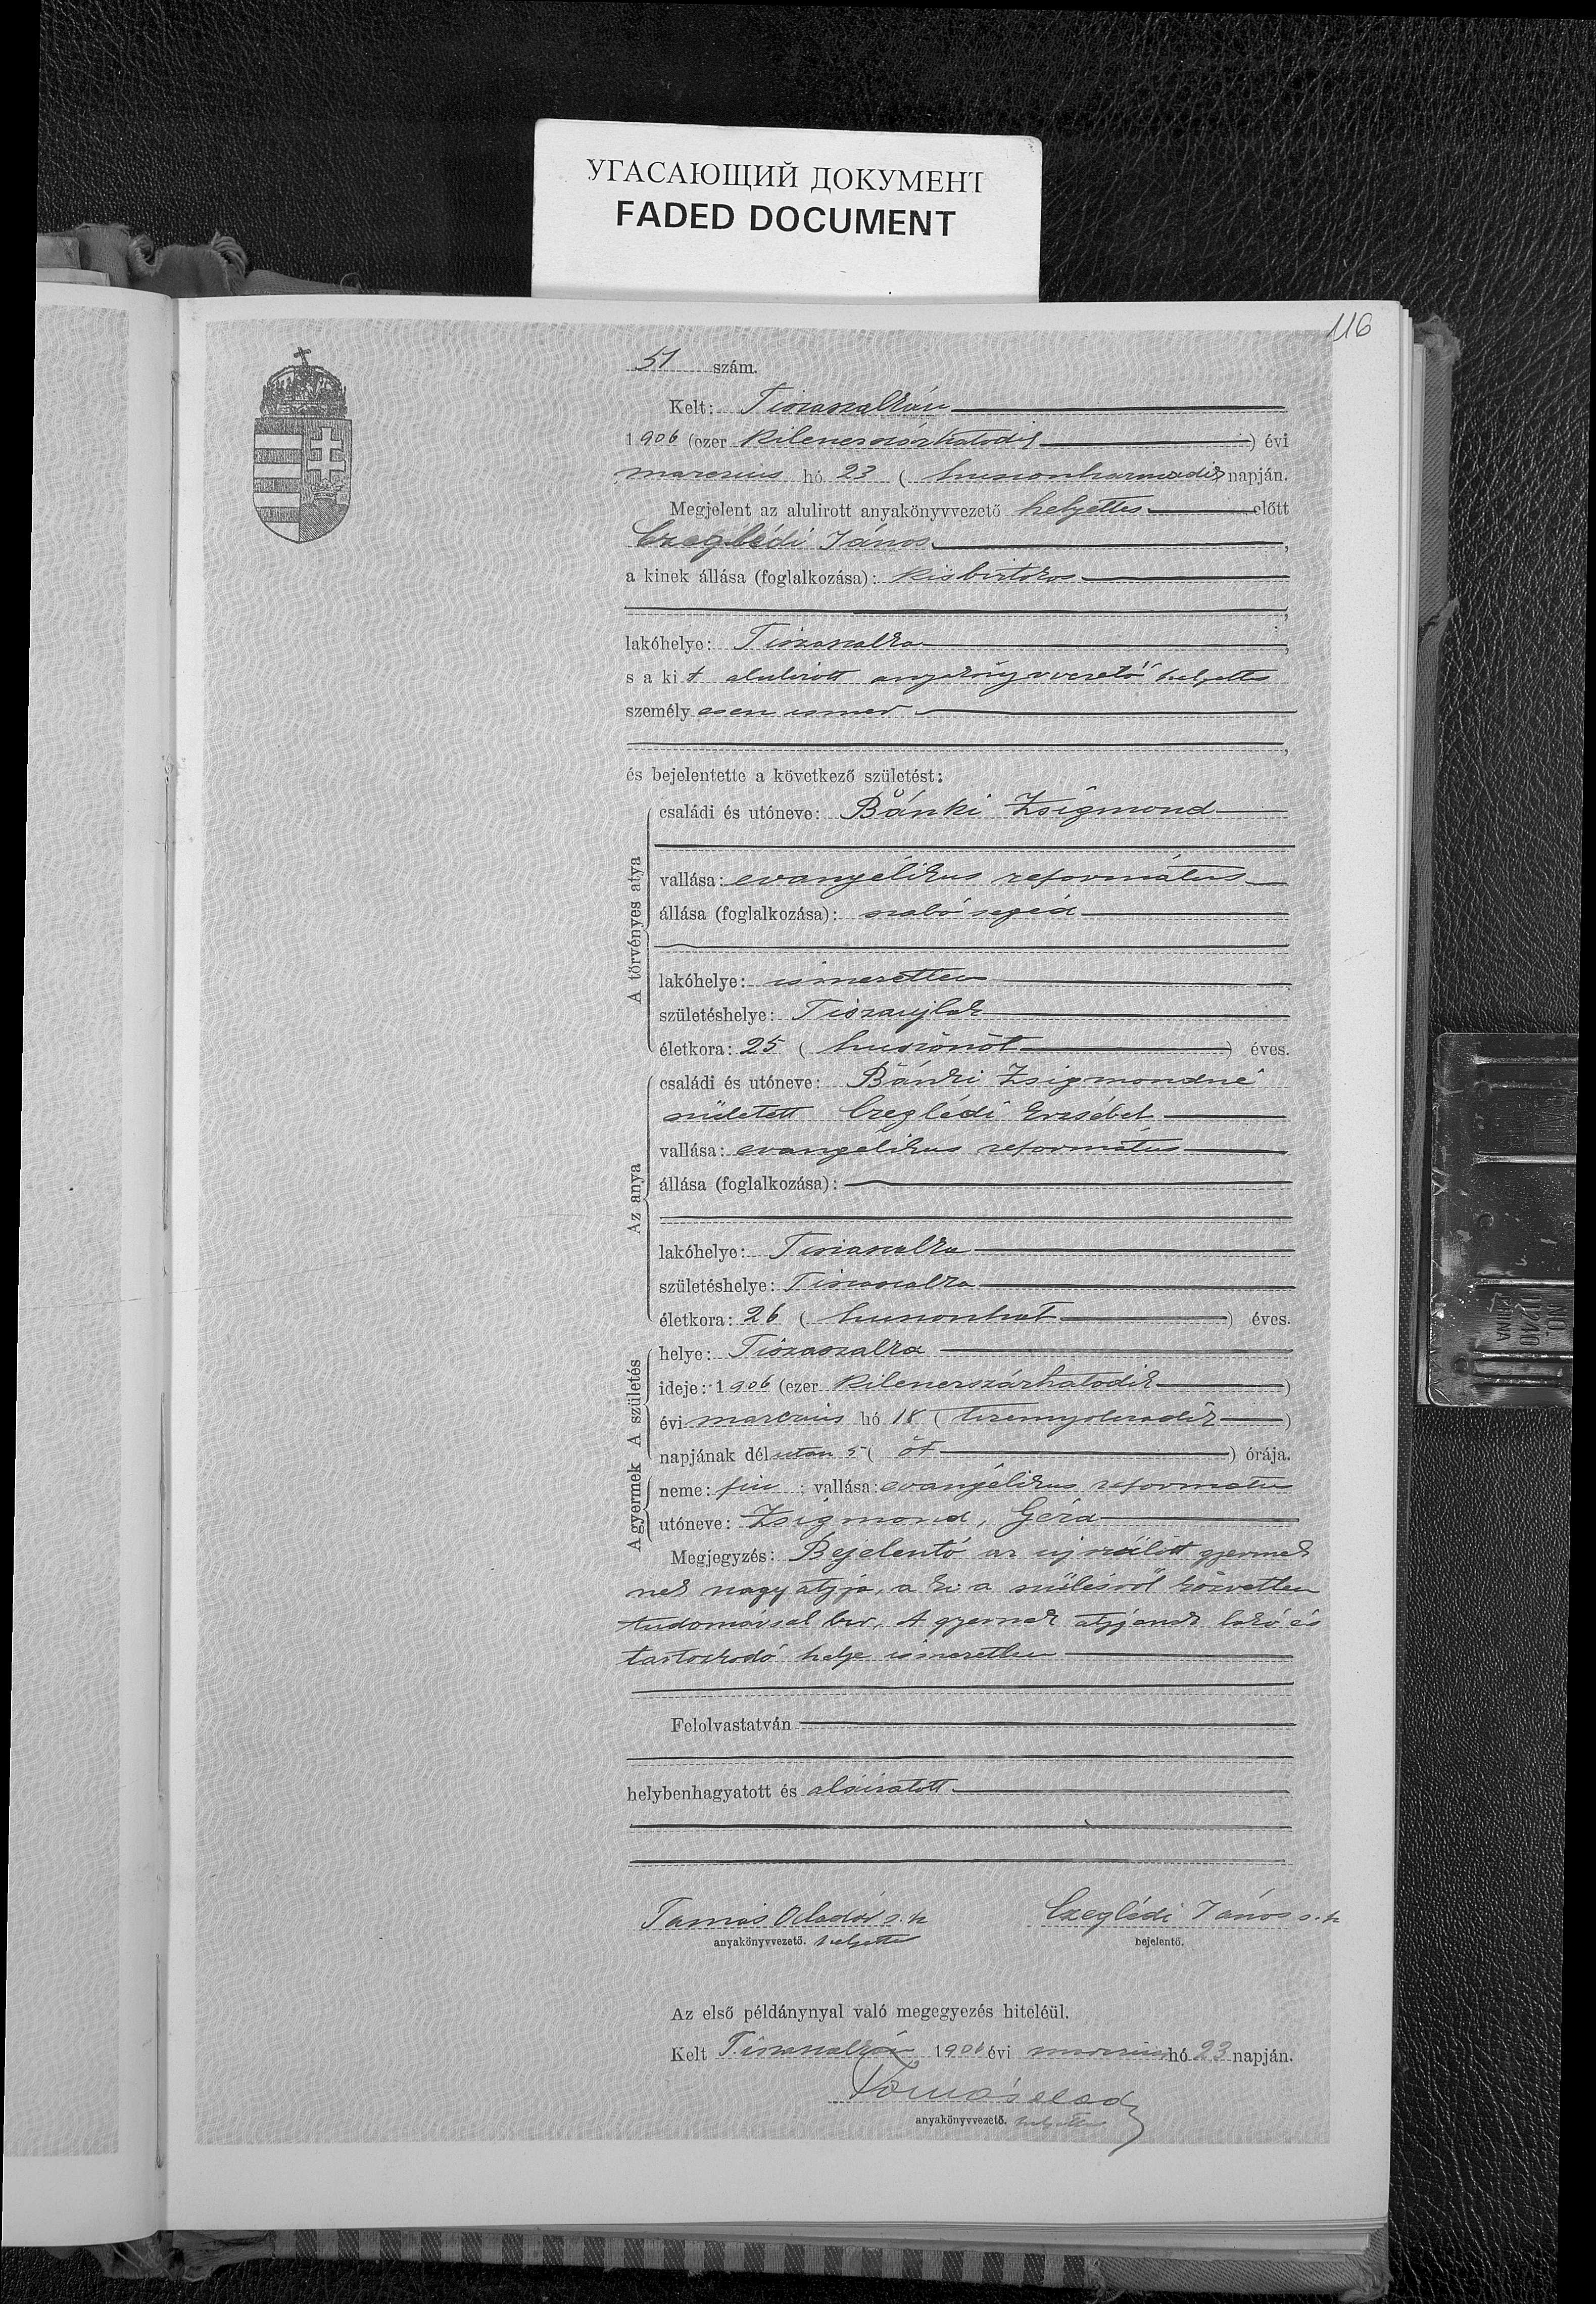 УГАСАЮЩИЙ ДОКУМЕНТ
FADED DOCUMENT
116
51 szám.
Kelt: Tiszaszalkán
1906 (ezer kilencszázhatodik) évi
marczius hó 23 (huszonharmadik napján.
Megjelent az alulirott anyakönyvvezető helyettes előtt
Czeglédi János,
a kinek állása (foglalkozása): kisbirtokos
lakóhelye: Tiszaszalka,
s a kit alulirott anyakönyvvezető helyettes
személyesen ismer
és bejelentette a következő születést:
A törvényes atya
családi és utóneve: Bánki Zsigmond
vallása: evangélikus református
állása (foglalkozása): szabó segéd
lakóhelye: ismeretlen
születéshelye: Tiszaujlak
életkora: 25 (huszonöt) éves.
Az anya
családi és utóneve: Bánki Zsigmondné
született Czeglédi Erzsébet
vallása: evangélikus református
állása (foglalkozása):
lakóhelye: Tiszaszalka
születéshelye: Tiszaszalka
életkora: 26 (huszonhat) éves.
A születés
helye: Tiszaszalka
ideje: 1906 (ezer kilencszázhatodik)
évi marczius hó 18 (tizennyolczadik)
napjának délután 5 (öt) órája.
A gyermek
neme: fiu; vallása: evangélikus református
utóneve: Zsigmond, Géza
Megjegyzés: Bejelentő az ujszülött gyermek
nek nagyatyja, a ki a szülésről közvetlen
tudomással bir, A gyermek atyjának lakó és
tartozkodó helye ismeretlen
Felolvastatván
helybenhagyatott és aláiratott
Tamás Aladár s. k
anyakönyvvezető. helyettes
Czeglédi János s. k
bejelentő.
Az első példánynyal való megegyezés hiteléül.
Kelt Tiszaszalkán 1906 évi marczius hó 23 napján.
Tamás Aladár
anyakönyvvezető. helyettes
NO.
11240
CHINA